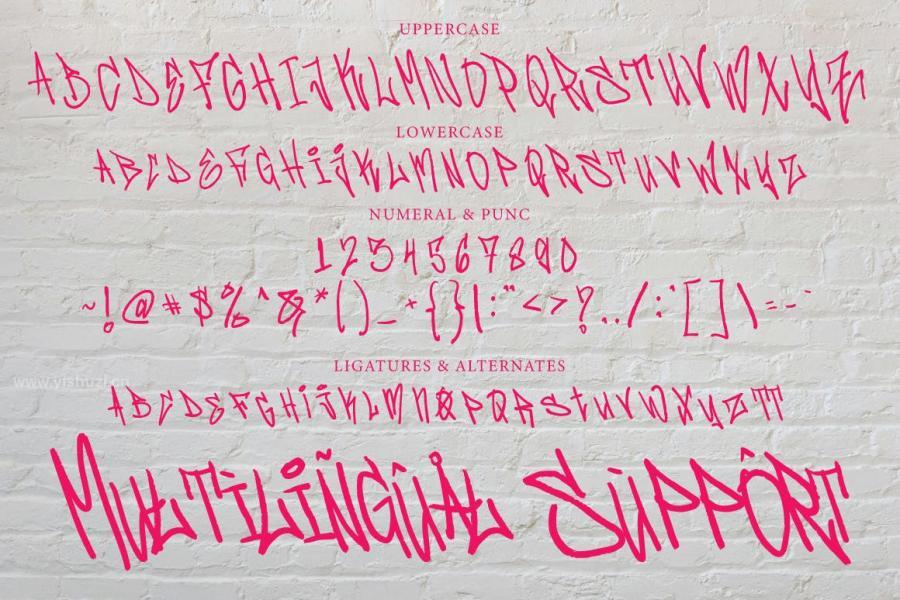 UPPERCASE
ABCDEFGHIJKLMNOPQRSTUVWXYZ
LOWERCASE
ABCDEFGHijKLMNOPQRSTUVWXYZ
NUMERAL & PUNC
1234567890
~!@#$%^&*()_+{}|:"<>?../;'[]\=-`
LIGATURES & ALTERNATES
www.yishuzi.cn
ABCDEFGHiJKLMNØPQRStUVWXYZTT
MULTILIÑGÛÅL SÙPPÔRT